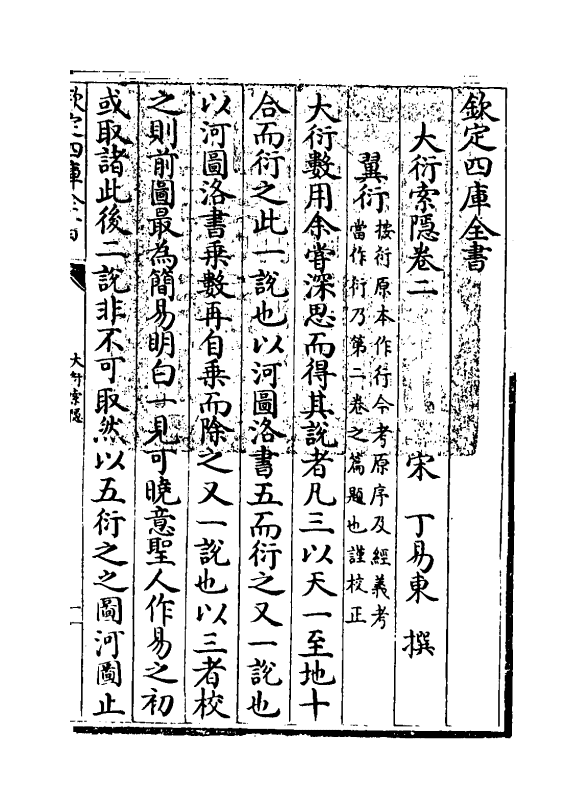 欽定四庫全書
大衍索隱卷二
宋 丁易東 撰
翼衍按衍原本作行今考原序及經義考
當作衍乃第二卷之篇題也謹校正
大衍數用余嘗深思而得其說者凡三以天一至地十
合而衍之此一說也以河圖洛書五而衍之又一說也
以河圖洛書乘數再自乘而除之又一說也以三者校
之則前圖最為簡易明白一見可曉意聖人作易之初
或取諸此後二說非不可取然以五衍之之圖河圖止
欽定四庫全書
大衍索隱